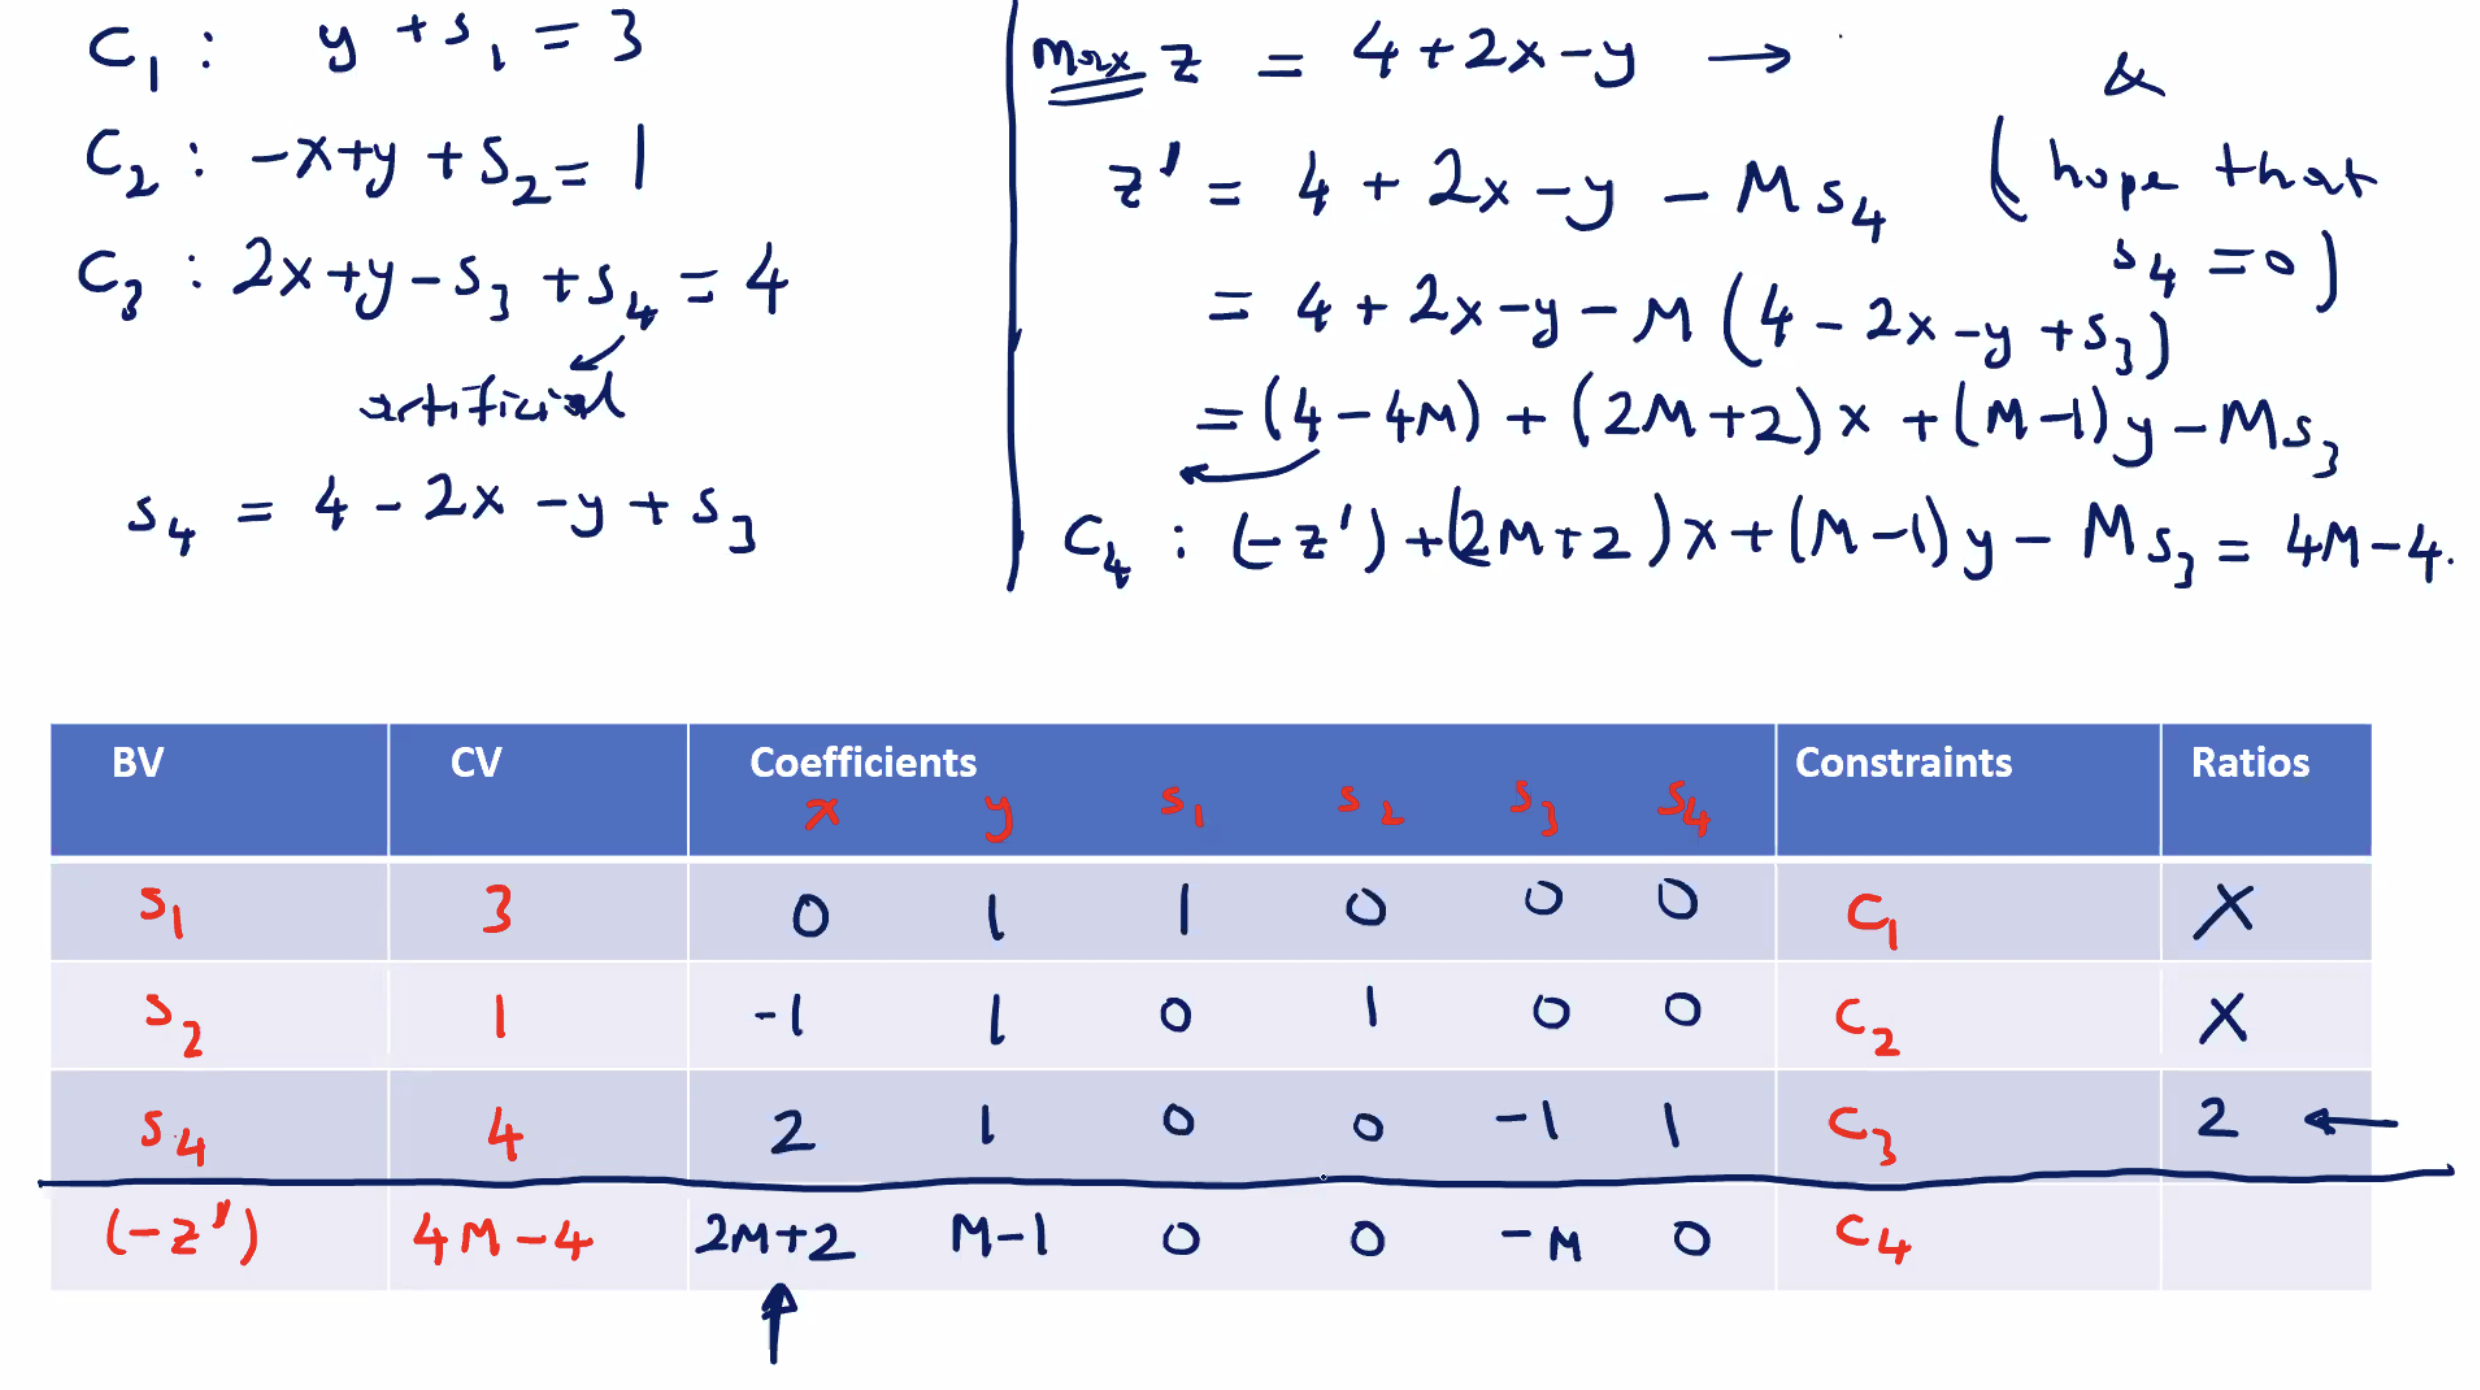 C₁ : y + s₁ = 3
C₂ : -x+y + s₂ = 1
C₃ : 2x+y-s₃ +s₄ = 4
artificial
s₄ = 4 - 2x - y + s₃
max z = 4+2x-y → &
z' = 4 + 2x - y - M s₄ (hope that
s₄ = 0)
= 4 + 2x - y - M (4 - 2x - y + s₃)
= (4-4M) + (2M+2) x + (M-1) y - M s₃
C₄ : (-z') + (2M+2) x + (M-1) y - M s₃ = 4M-4.
BV CV Coefficients Constraints Ratios
x y s₁ s₂ s₃ s₄
s₁ 3 0 1 1 0 0 0 C₁ X
s₂ 1 -1 1 0 1 0 0 C₂ X
s₄ 4 2 1 0 0 -1 1 C₃ 2 ←
(-z') 4M-4 2M+2 M-1 0 0 -M 0 C₄
↑